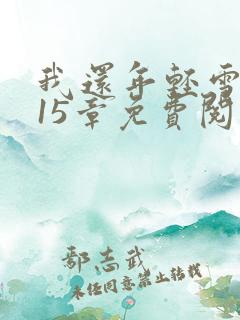 我還年輕需
15章免費閱
鄢志武
未經同意禁止轉載